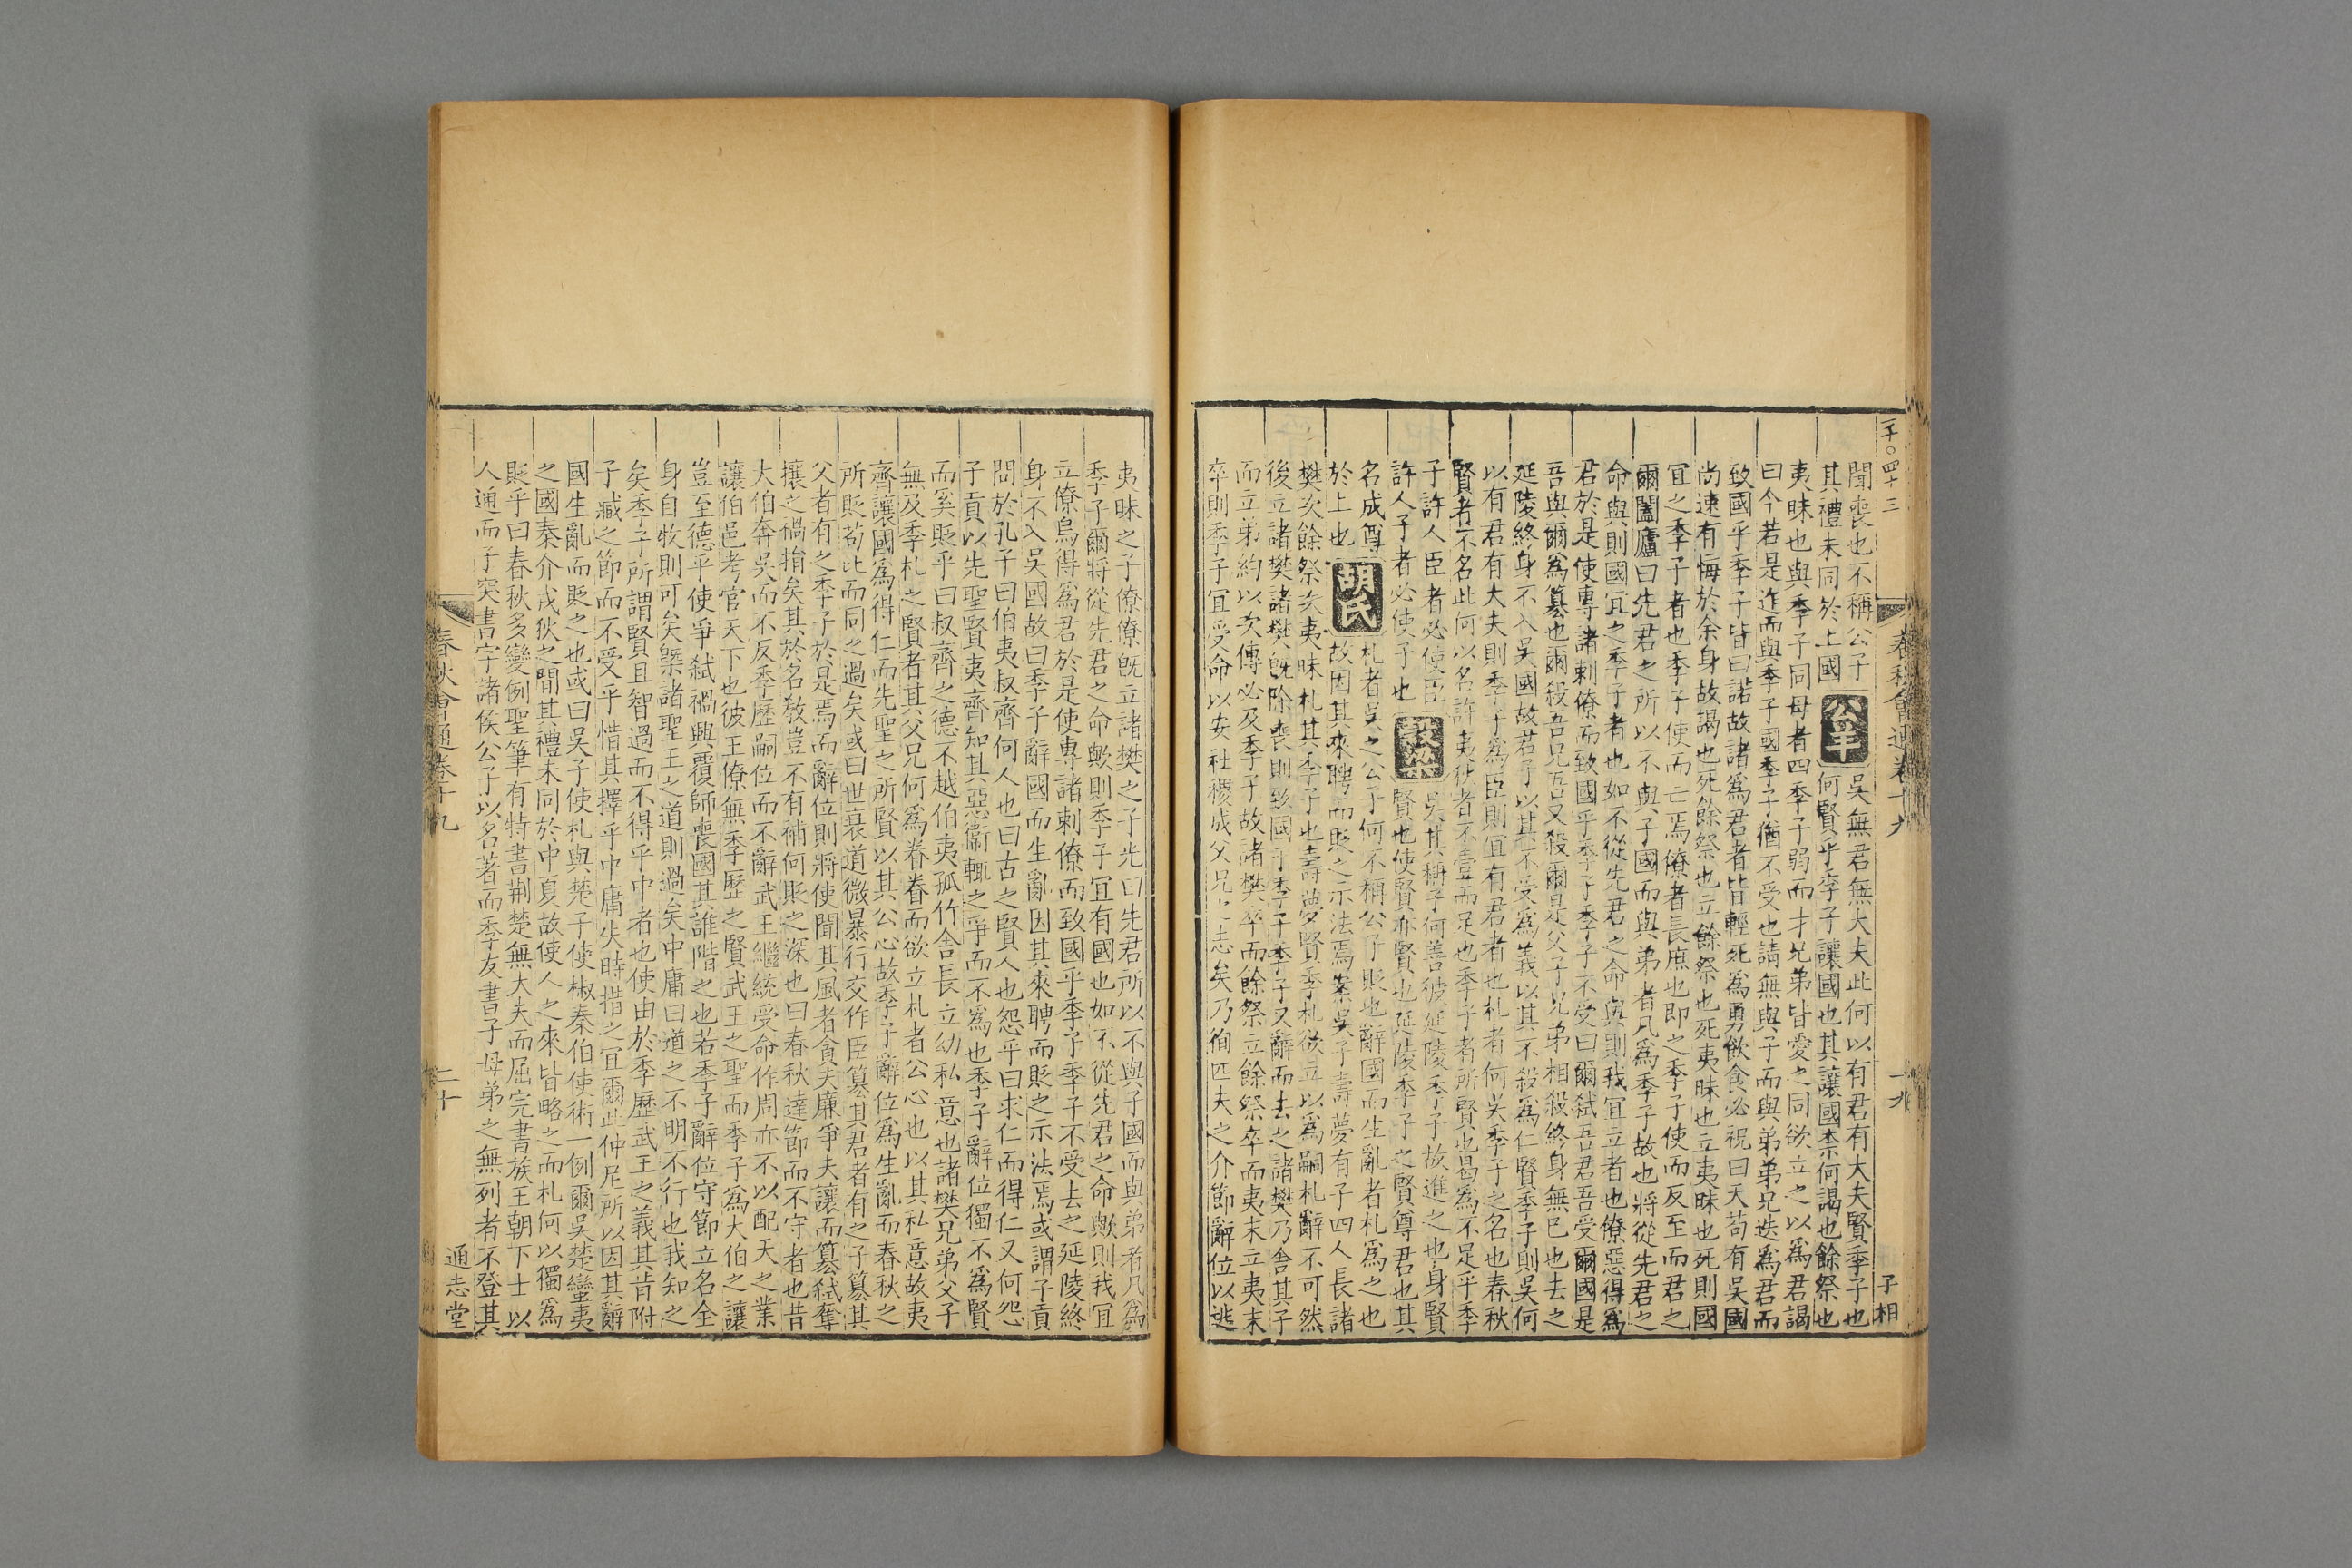 二千〇四十三
春秋會通卷十九
十九
子相
聞喪也不稱公子
其禮未同於上國 公羊 吳無君無大夫此何以有君有大夫賢季子也
何賢乎季子讓國也其讓國柰何謁也餘祭也
夷昧也與季子同母者四季子弱而才兄弟皆愛之同欲立之以為君謁
曰今若是迮而與季子國季子猶不受也請無與子而與弟弟兄迭為君而
致國乎季子皆曰諾故諸為君者皆輕死為勇飲食必祝曰天苟有吳國
尚速有悔於余身故謁也死餘祭也立餘祭也死夷昧也立夷昧也死則國
宜之季子者也季子使而亡焉僚者長庶也即之季子使而反至而君之
爾闔廬曰先君之所以不與子國而與弟者凡為季子故也將從先君之
命與則國宜之季子者也如不從先君之命與則我宜立者也僚惡得為
君於是使專諸刺僚而致國乎季子季子不受曰爾弑吾君吾受爾國是
吾與爾為篡也爾殺吾兄吾又殺爾是父子兄弟相殺終身無已也去之
延陵終身不入吳國故君子以其不受為義以其不殺為仁賢季子則吳何
以有君有大夫則季子為臣則宜有君者也札者何吳季子之名也春秋
賢者不名此何以名許夷狄者不壹而足也季子者所賢也曷為不足乎季
子許人臣者必使臣
許人子者必使子也 穀梁 吳其稱子何善彼延陵季子故進之也身賢
賢也使賢亦賢也延陵季子之賢尊君也其
名成尊
於上也 胡氏 札者吳之公子何不稱公子貶也辭國而生亂者札為之也
故因其來聘而貶之示法焉案吳子壽夢有子四人長諸
樊次餘祭次夷昧札其季子也壽夢賢季札欲立以為嗣札辭不可然
後立諸樊諸樊既除喪則致國于季子季子又辭而去之諸樊乃舍其子
而立弟約以次傳必及季子故諸樊卒而餘祭立餘祭卒而夷末立夷末
卒則季子宜受命以安社稷成父兄之志矣乃徇匹夫之介節辭位以逃
夷昧之子僚僚既立諸樊之子光曰先君所以不與子國而與弟者凡為
季子爾將從先君之命歟則季子宜有國也如不從先君之命歟則我宜
立僚烏得為君於是使專諸刺僚而致國乎季子季子不受去之延陵終
身不入吳國故曰季子辭國而生亂因其來聘而貶之示法焉或謂子貢
問於孔子曰伯夷叔齊何人也曰古之賢人也怨乎曰求仁而得仁又何怨
子貢以先聖賢夷齊知其惡衞輒之爭而不為也季子辭位獨不為賢
而奚貶乎曰叔齊之德不越伯夷孤竹舍長立幼私意也諸樊兄弟父子
無及季札之賢者其父兄何為眷眷而欲立札者公心也以其私意故夷
齊讓國為得仁而先聖之所賢以其公心故季子辭位為生亂而春秋之
所貶苟比而同之過矣或曰世衰道微暴行交作臣篡其君者有之子篡其
父者有之季子於是焉而辭位則將使聞其風者貪夫廉爭夫讓而篡弑奪
攘之禍指矣其於名教豈不有補何貶之深也曰春秋達節而不守者也昔
大伯奔吳而不反季歷嗣位而不辭武王繼統受命作周亦不以配天之業
讓伯邑考官天下也彼王僚無季歷之賢武王之聖而季子為大伯之讓
豈至德乎使爭弑禍興覆師喪國其誰階之也若季子辭位守節立名全
身自牧則可矣槩諸聖王之道則過矣中庸曰道之不明不行也我知之
矣季子所謂賢且智過而不得乎中者也使由於季歷武王之義其肯附
子臧之節而不受乎惜其擇乎中庸失時措之宜爾此仲尼所以因其辭
國生亂而貶之也或曰吳子使札與楚子使椒秦伯使術一例爾吳楚蠻夷
之國秦介戎狄之間其禮未同於中夏故使人之來皆略之而札何以獨為
貶乎曰春秋多變例聖筆有特書荆楚無大夫而屈完書族王朝下士以
人通而子突書字諸侯公子以名著而季友書子母弟之無列者不登其
春秋會通卷十九
二十
通志堂